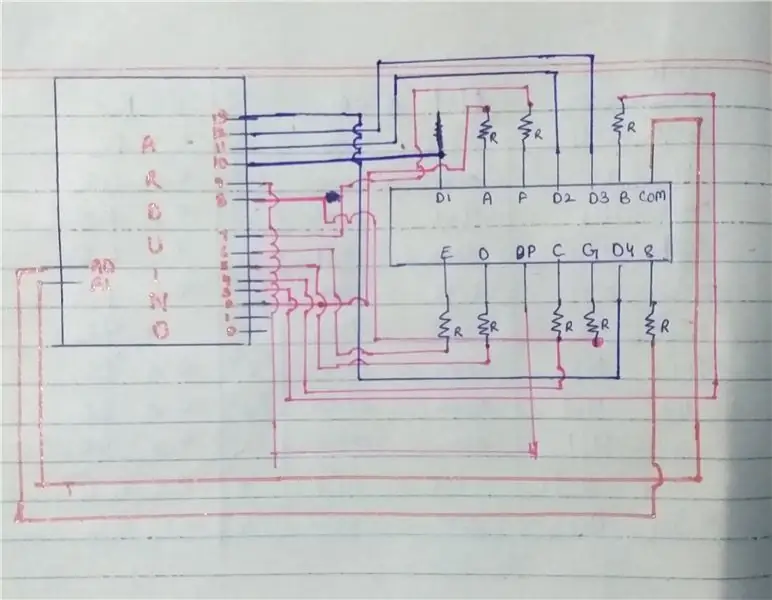 13
12
11
10
9
8
7
6
5
4
3
2
1
0
A
R
D
U
I
N
O
A0
A1
R
R
R
D1 A F D2 D3 B COM
E D DP C G D4 8
R
R
R
R
R